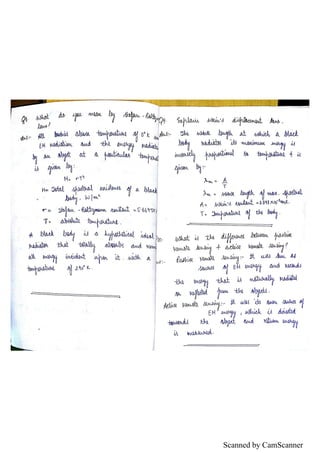 Q3 What do you mean by Stefan - Boltz
law?
Ans:- All bodies above temperature of 0°k
EM radiation and the energy radiate
by an object at a particular temperat
is given by:
M = σT⁴
M = Total spectral exidance of a black
body. W/m²
σ = Stefan - Boltzmann constant = 5.6697
T = absolute temperature.
A black body is a hypothetical ideal
radiator that totally absorbs and
all energy incident upon it with a
temperature of
Q4 Explain Wein's displacement law.
Ans:- The wave length at which a black
body radiates its maximum energy is
inversely proportional to temperature & is
given by:-
λm = A/T
λm = wave length of max. spectral
A = Wein's constant
T = Temperature of the body.
What is the difference between passive
remote sensing & active remote sensing?
Passive remote sensing:- It uses sun as
source of EM energy and records
the energy that is naturally radiated
or reflected from the objects.
Active remote sensing:- It uses its own source of
EM energy, which is directed
towards the object and return energy
is measured.
Scanned by CamScanner